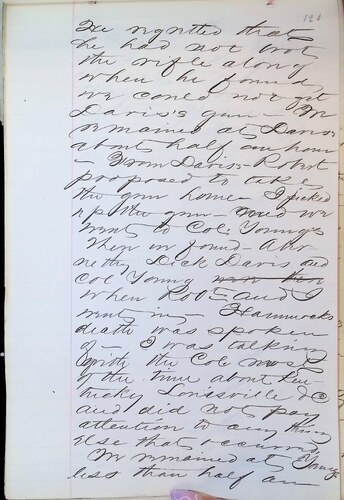 121
He regretted that
he had not bot
the rifle along
when he found
we could not get
Davis's gun – We
remained at Davis's
about half an hour
– From Davis's – Robt
proposed to take
the gun home – I picked
up the gun – and we
went to Col. Young's
Then we found –
Dick Davis and
Col Young
when Robt – and I
went in – Hammocks
death was spoken
of – I was talking
with the Col most
of the time about Ken-
tucky Louisville &c
and did not pay
attention to any thing
else that occurred.
We remained at Young's
less than half an